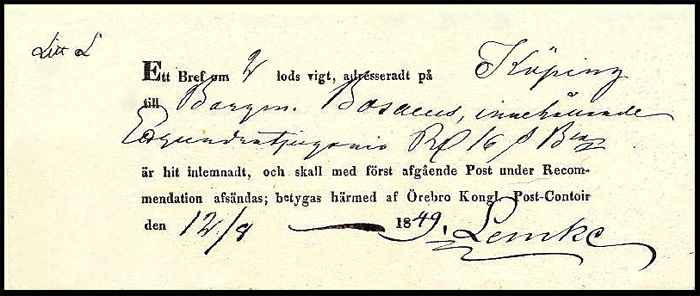 Litt L
Ett Bref om 2 lods vigt, adresseradt på Köping
till Borgm. Bosaeus, innehållande
Rd 16 s Bco
är hit inlemnadt, och skall med först afgående Post under Recom-
mendation afsändas; betygas härmed af Örebro Kongl. Post-Contoir
den 12/8 1849. Lemke